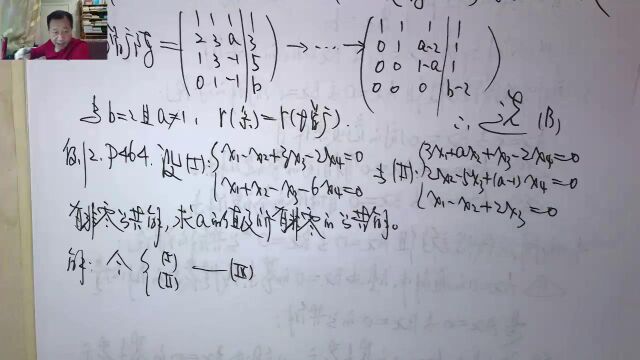 增广阵 = (1 1 1 | 1; 2 3 a | 3; 1 3 -1 | 5; 0 1 -1 | b) → ⋯ → (1 1 1 | 1; 0 1 a-2 | 1; 0 0 1-a | 1; 0 0 0 | b-2)
当 b=2且a≠1, r(系)=r(增广). ∴ 选 (B)
例12. P464. 设(I): { x₁-x₂+3x₃-2x₄=0 与(II): { 3x₁+ax₂+x₃-2x₄=0
x₁+x₂-x₃-6x₄=0 2x₂-5x₃+(a-1)x₄=0
x₁-x₂+2x₃=0
有非零公共解, 求a的值及所有非零的公共解。
解: 令 { (I) (II) —— (III)